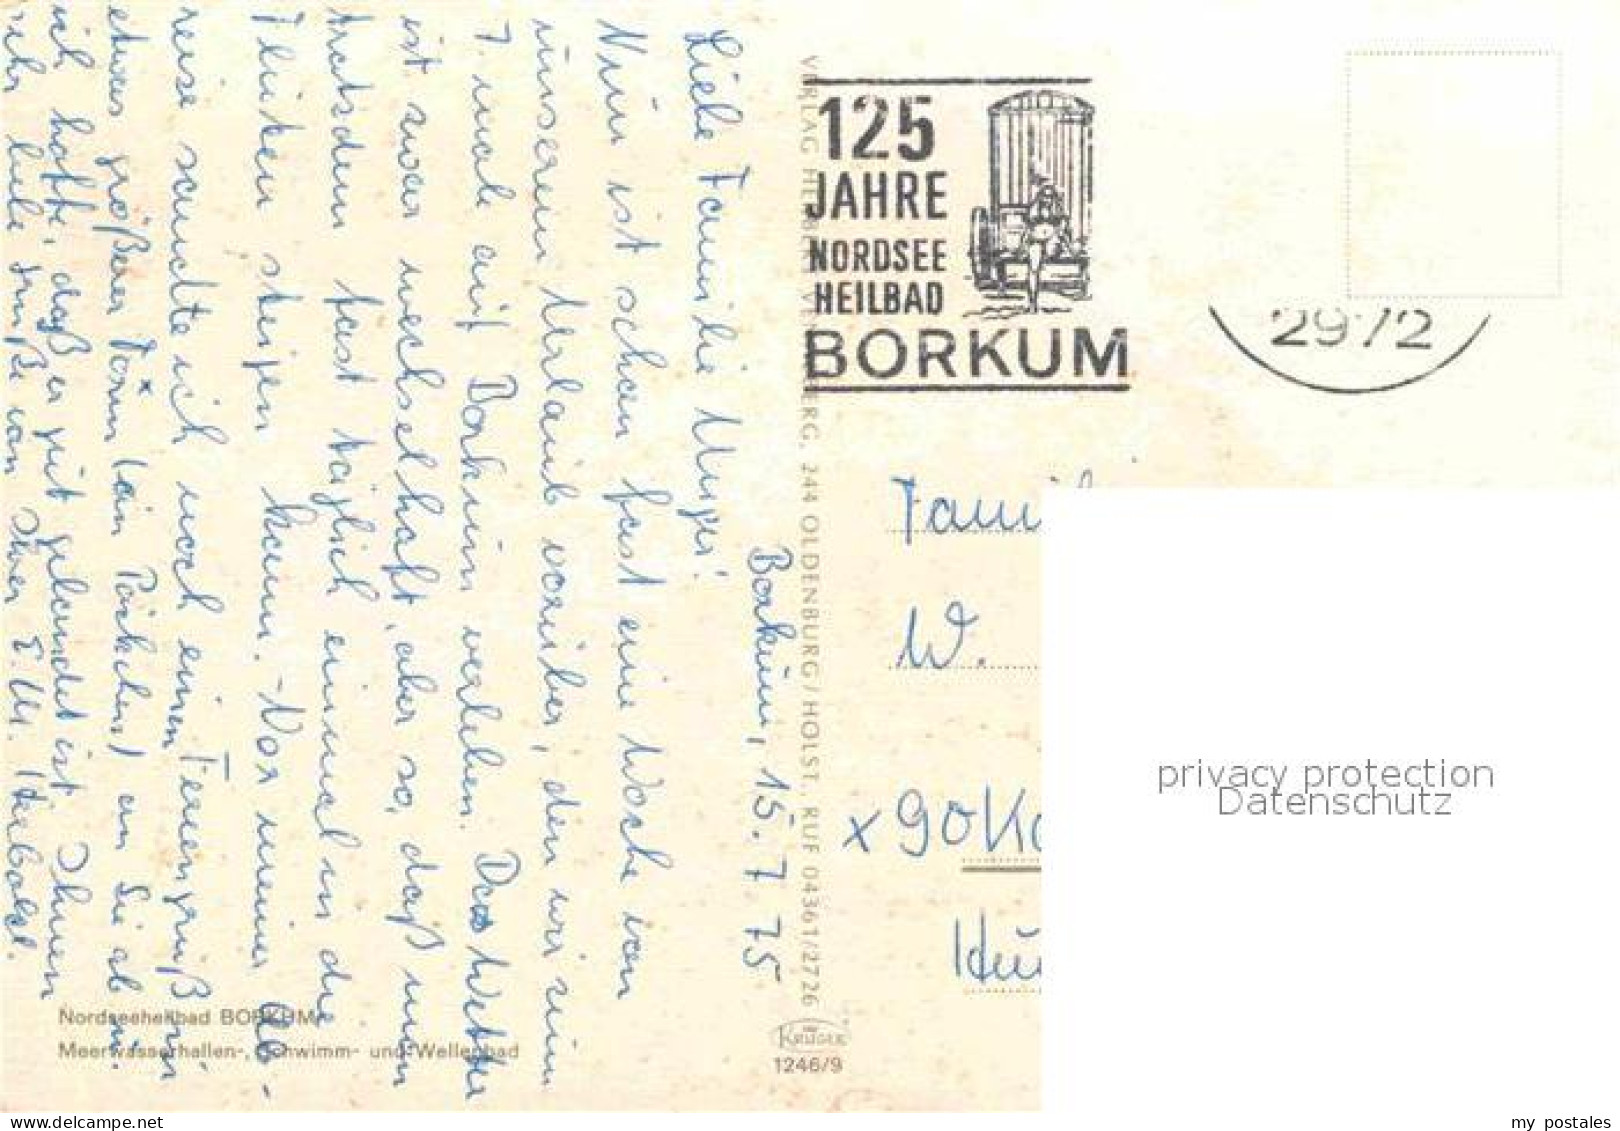 Borkum, 15.7.75
Liebe Familie
Nun ist schon fast eine Woche von
unserem Urlaub vorüber, den wir zum
7. male auf Borkum verleben. Das Wetter
ist zwar wechselhaft, aber so, daß man
trotzdem fast täglich einmal in die
Fluten steigen kann. - Vor meiner Ab-
reise sandte ich noch einen Feriengruß in
etwas größerer Form (ein Päckchen) an Sie ab u.
ich hoffe, daß er gut gelandet ist. Ihnen
sehr liebe Grüße von Ihrer
125
JAHRE
NORDSEE
HEILBAD
BORKUM
2972
VERLAG 244 OLDENBURG/HOLST., RUF 04361/2726
Famil
W.
x 90
Nordseeheilbad BORKUM
Meerwasserhallen-, Schwimm- und Wellenbad
KRÜGER
1246/9
privacy protection
Datenschutz
my postales